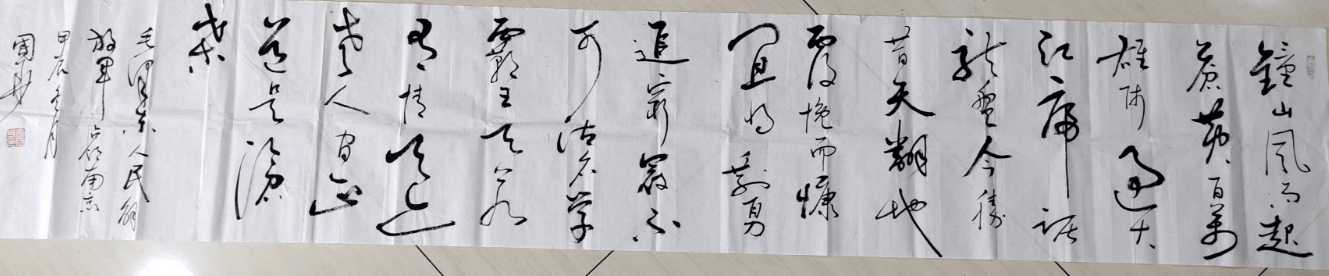 鐘山風雨起
蒼黃百萬
雄师過大
江虎踞
龙盤今勝
昔天翻地
覆慨而慷
宜将剩勇
追窮寇不
可沽名学
霸王天若
有情天亦
老人间正
道是滄
桒
毛澤东人民解
放军占领南京
甲辰冬月
國